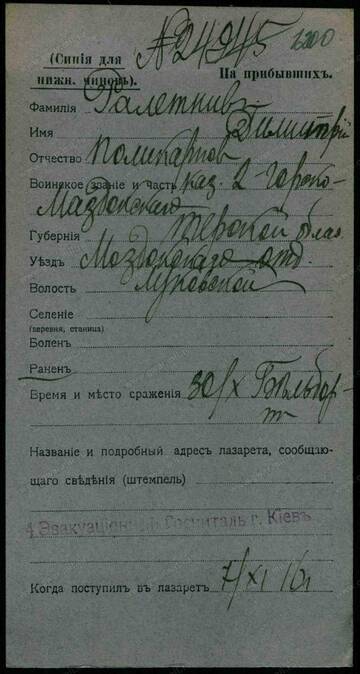 № 24945 3200
(Синія для
нижн. чиновъ). На прибывшихъ.
Фамилія
Имя Димитрій
Отчество Поликарпов
Воинское званіе и часть каз. 2 Горско-
Моздокскаго
Губернія Терской облас
Уѣздъ Моздокскаго отд.
Волость Луковской
Селеніе
(деревня, станица)
Боленъ
Раненъ
Время и мѣсто сраженія 30/X
Названіе и подробный адресъ лазарета, сообщаю-
щаго свѣдѣнія (штемпель)
4 Эвакуаціонный Госпиталь г. Кіевъ
Когда поступилъ въ лазаретъ 7/XI 16 г